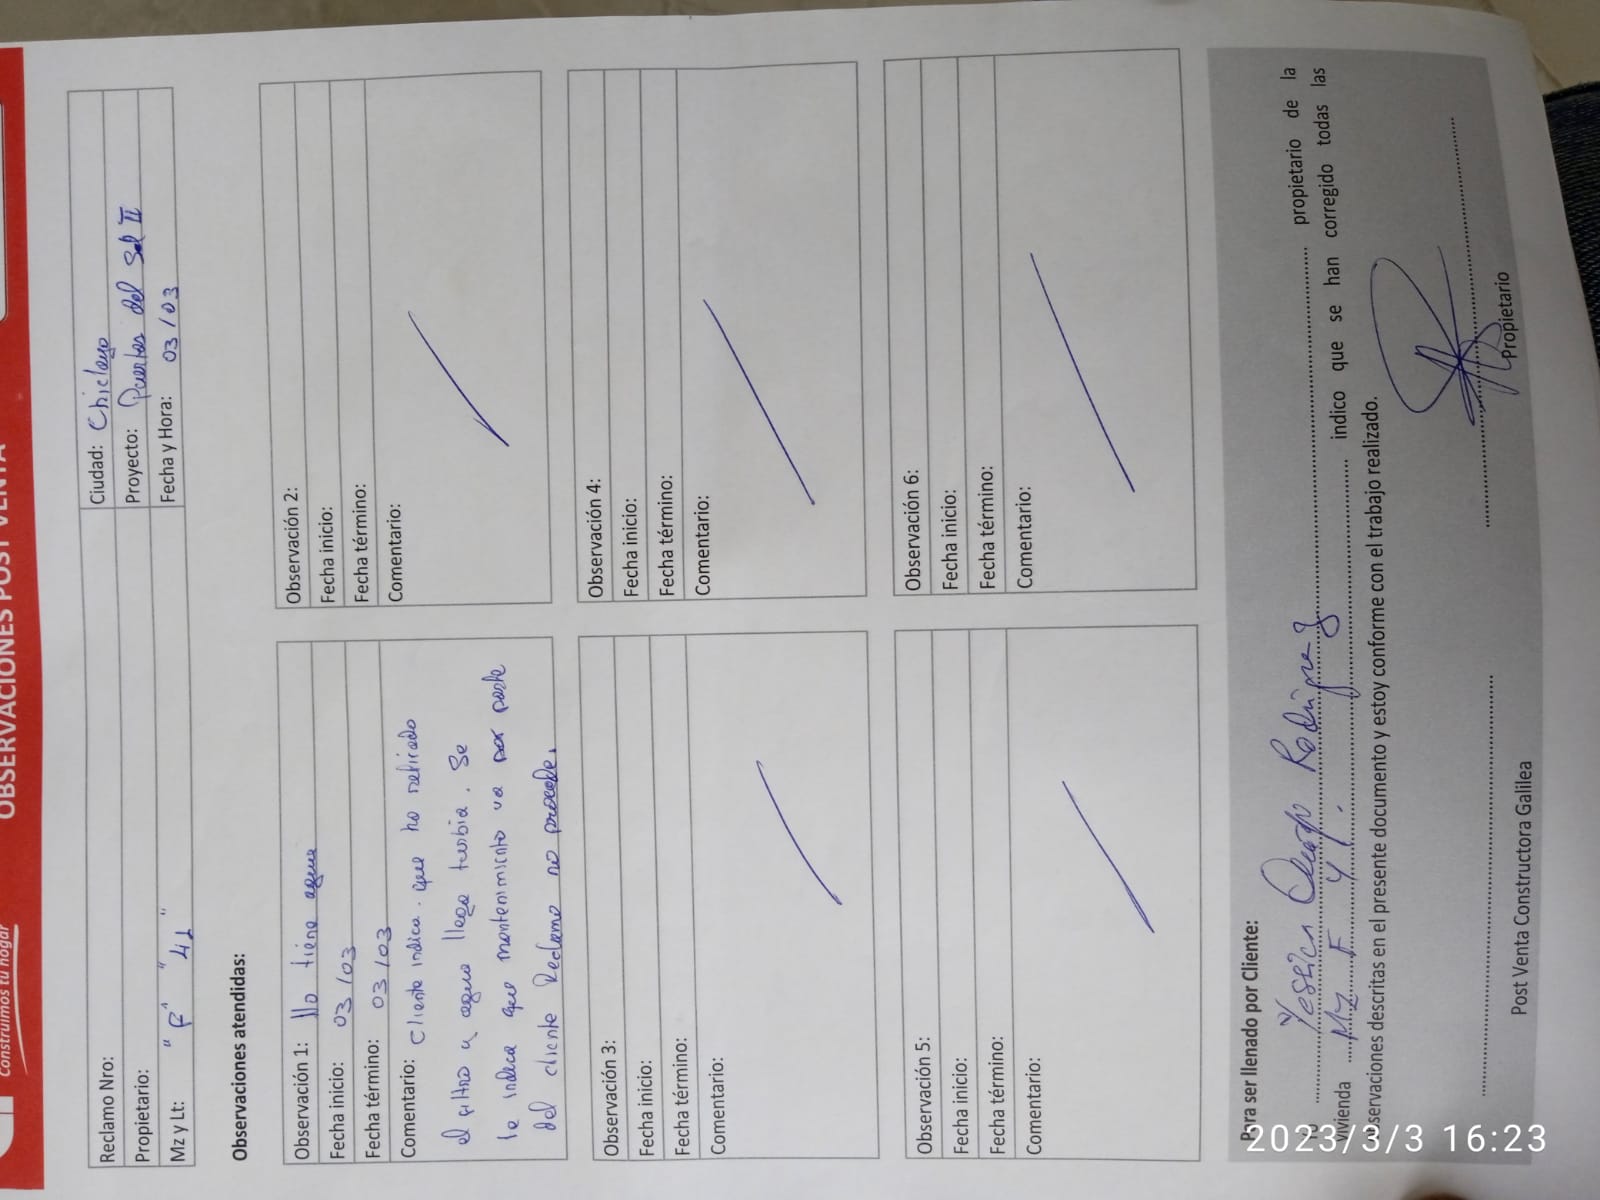 Construimos tu hogar
OBSERVACIONES POST VENTA
Reclamo Nro:
Ciudad: Chiclayo
Propietario:
Proyecto: Puertas del Sol II
Mz y Lt: " F " 41 "
Fecha y Hora: 03/03
Observaciones atendidas:
Observación 1: No tiene agua
Fecha inicio: 03/03
Fecha término: 03/03
Comentario: Cliente indica que ha retirado
el filtro y agua llega turbia. Se
le indica que mantenimiento va por parte
del cliente Reclamo no procede.
Observación 2:
Fecha inicio:
Fecha término:
Comentario:
Observación 3:
Fecha inicio:
Fecha término:
Comentario:
Observación 4:
Fecha inicio:
Fecha término:
Comentario:
Observación 5:
Fecha inicio:
Fecha término:
Comentario:
Observación 6:
Fecha inicio:
Fecha término:
Comentario:
Para ser llenado por Cliente:
Yessica Rodriguez propietario de la
vivienda Mz F 41. indico que se han corregido todas las
observaciones descritas en el presente documento y estoy conforme con el trabajo realizado.
Post Venta Constructora Galilea
Propietario
2023/3/3 16:23